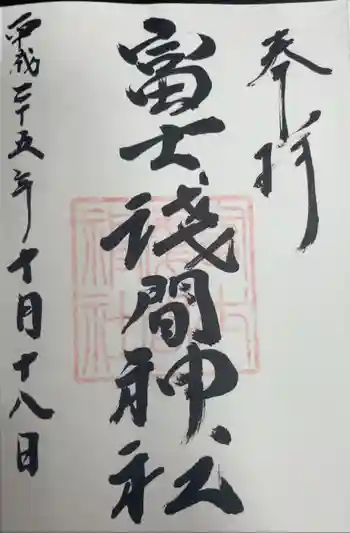 奉拝
富士浅間神社
平成二十五年十月十八日